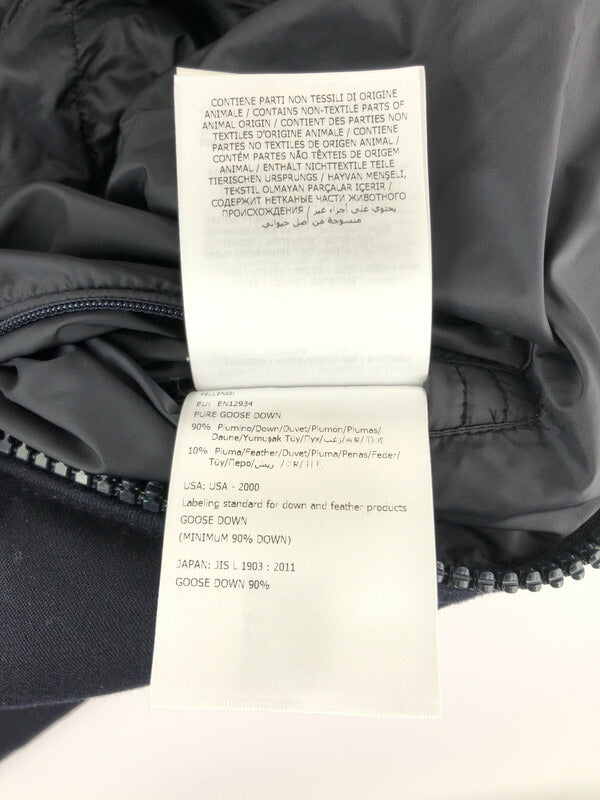 CONTIENE PARTI NON TESSILI DI ORIGINE
ANIMALE / CONTAINS NON-TEXTILE PARTS OF
ANIMAL ORIGIN / CONTIENT DES PARTIES NON
TEXTILES D'ORIGINE ANIMALE / CONTIENE
PARTES NO TEXTILES DE ORIGEN ANIMAL /
CONTÉM PARTES NÃO TÊXTEIS DE ORIGEM
ANIMAL / ENTHÄLT NICHTTEXTILE TEILE
TIERISCHEN URSPRUNGS / HAYVAN MENŞELİ,
TEKSTIL OLMAYAN PARÇALAR IÇERIR /
СОДЕРЖИТ НЕТКАНЫЕ ЧАСТИ ЖИВОТНОГО
ПРОИСХОЖДЕНИЯ / يحتوي على أجزاء غير
منسوجة من أصل حيواني
FILLING:
EU: EN12934
PURE GOOSE DOWN
90% Piumino/Down/Duvet/Plumón/Plumas/
Daune/Yumuşak Tüy/Пух/زغب/
10% Piuma/Feather/Duvet/Pluma/Penas/Feder/
Tüy/Перо/ريش/
USA: USA - 2000
Labeling standard for down and feather products
GOOSE DOWN
(MINIMUM 90% DOWN)
JAPAN: JIS L 1903 : 2011
GOOSE DOWN 90%